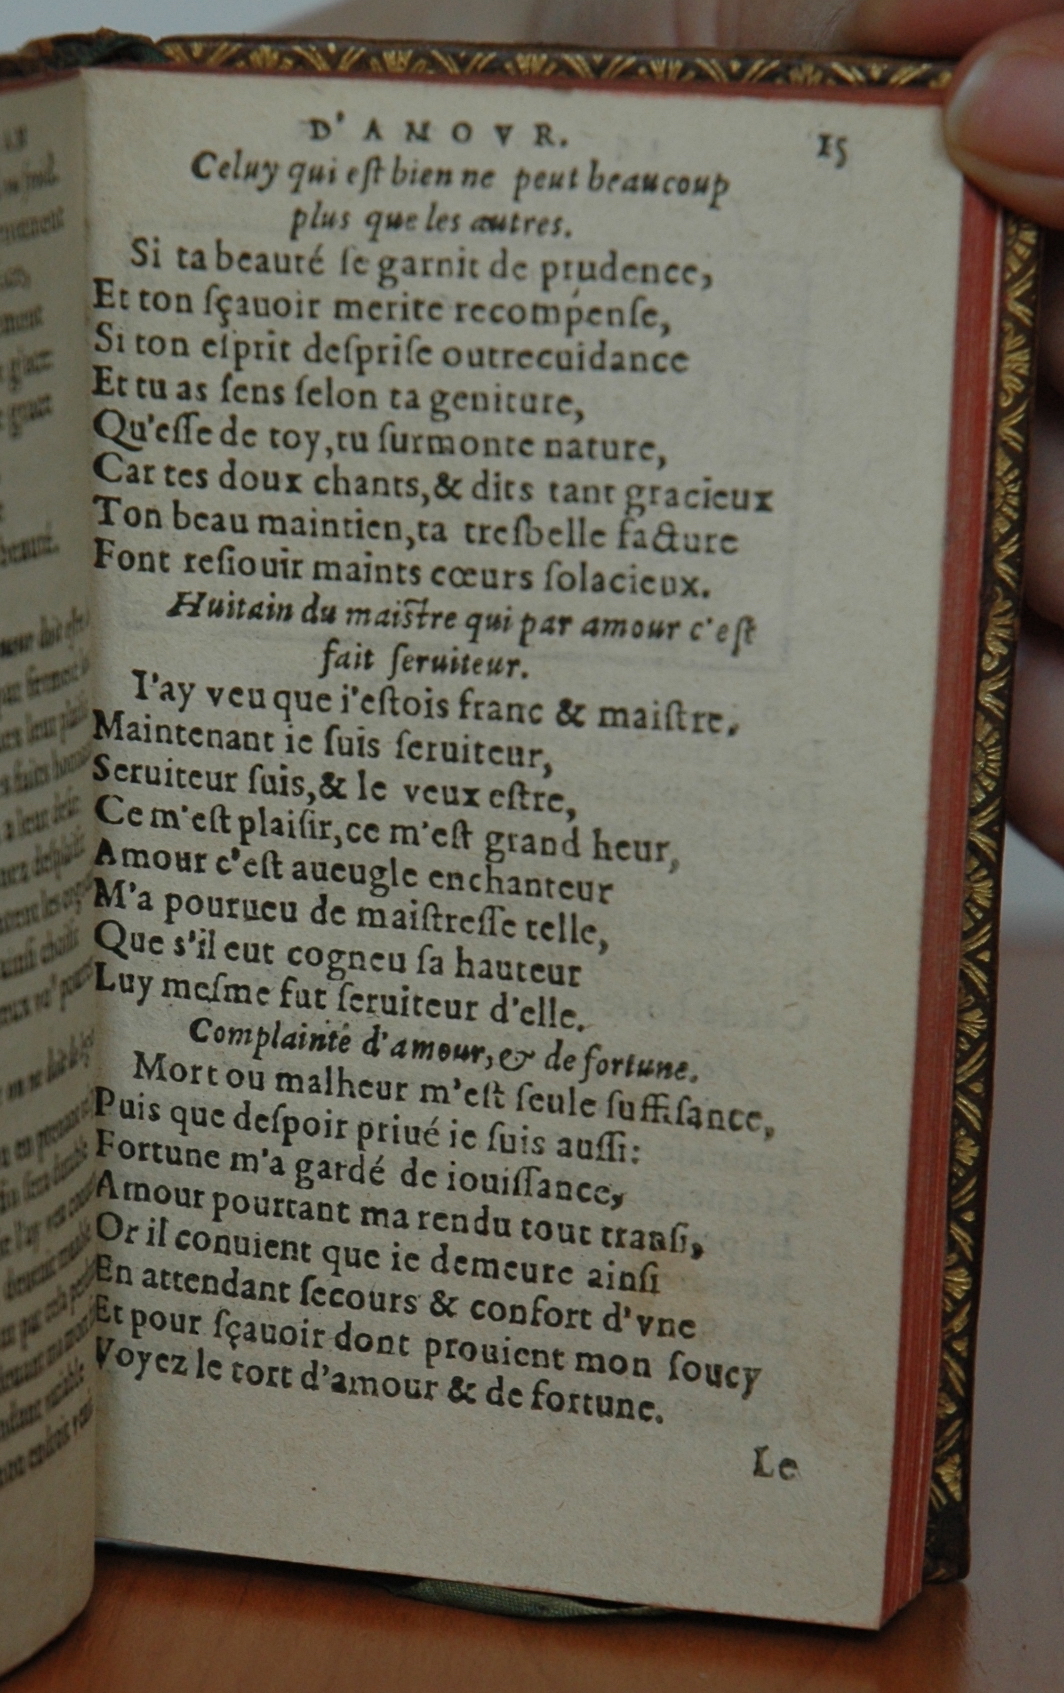 D'AMOVR. 15
Celuy qui eſt bien ne peut beaucoup
plus que les autres.
Si ta beauté ſe garnit de prudence,
Et ton ſçauoir merite recompenſe,
Si ton eſprit deſpriſe outrecuidance
Et tu as ſens ſelon ta geniture,
Qu'eſſe de toy, tu ſurmonte nature,
Car tes doux chants, & dits tant gracieux
Ton beau maintien, ta treſbelle facture
Font reſiouir maints cœurs ſolacieux.
Huitain du maiſtre qui par amour c'eſt
fait ſeruiteur.
I'ay veu que i'eſtois franc & maiſtre,
Maintenant ie ſuis ſeruiteur,
Seruiteur ſuis, & le veux eſtre,
Ce m'eſt plaiſir, ce m'eſt grand heur,
Amour c'eſt aueugle enchanteur
M'a pourueu de maiſtreſſe telle,
Que s'il eut cogneu ſa hauteur
Luy meſme fut ſeruiteur d'elle.
Complainte d'amour, & de fortune.
Mort ou malheur m'eſt ſeule ſuffiſance,
Puis que deſpoir priué ie ſuis auſſi:
Fortune m'a gardé de iouiſſance,
Amour pourtant ma rendu tout tranſi,
Or il conuient que ie demeure ainſi
En attendant ſecours & confort d'vne
Et pour ſçauoir dont prouient mon ſoucy
Voyez le tort d'amour & de fortune.
Le